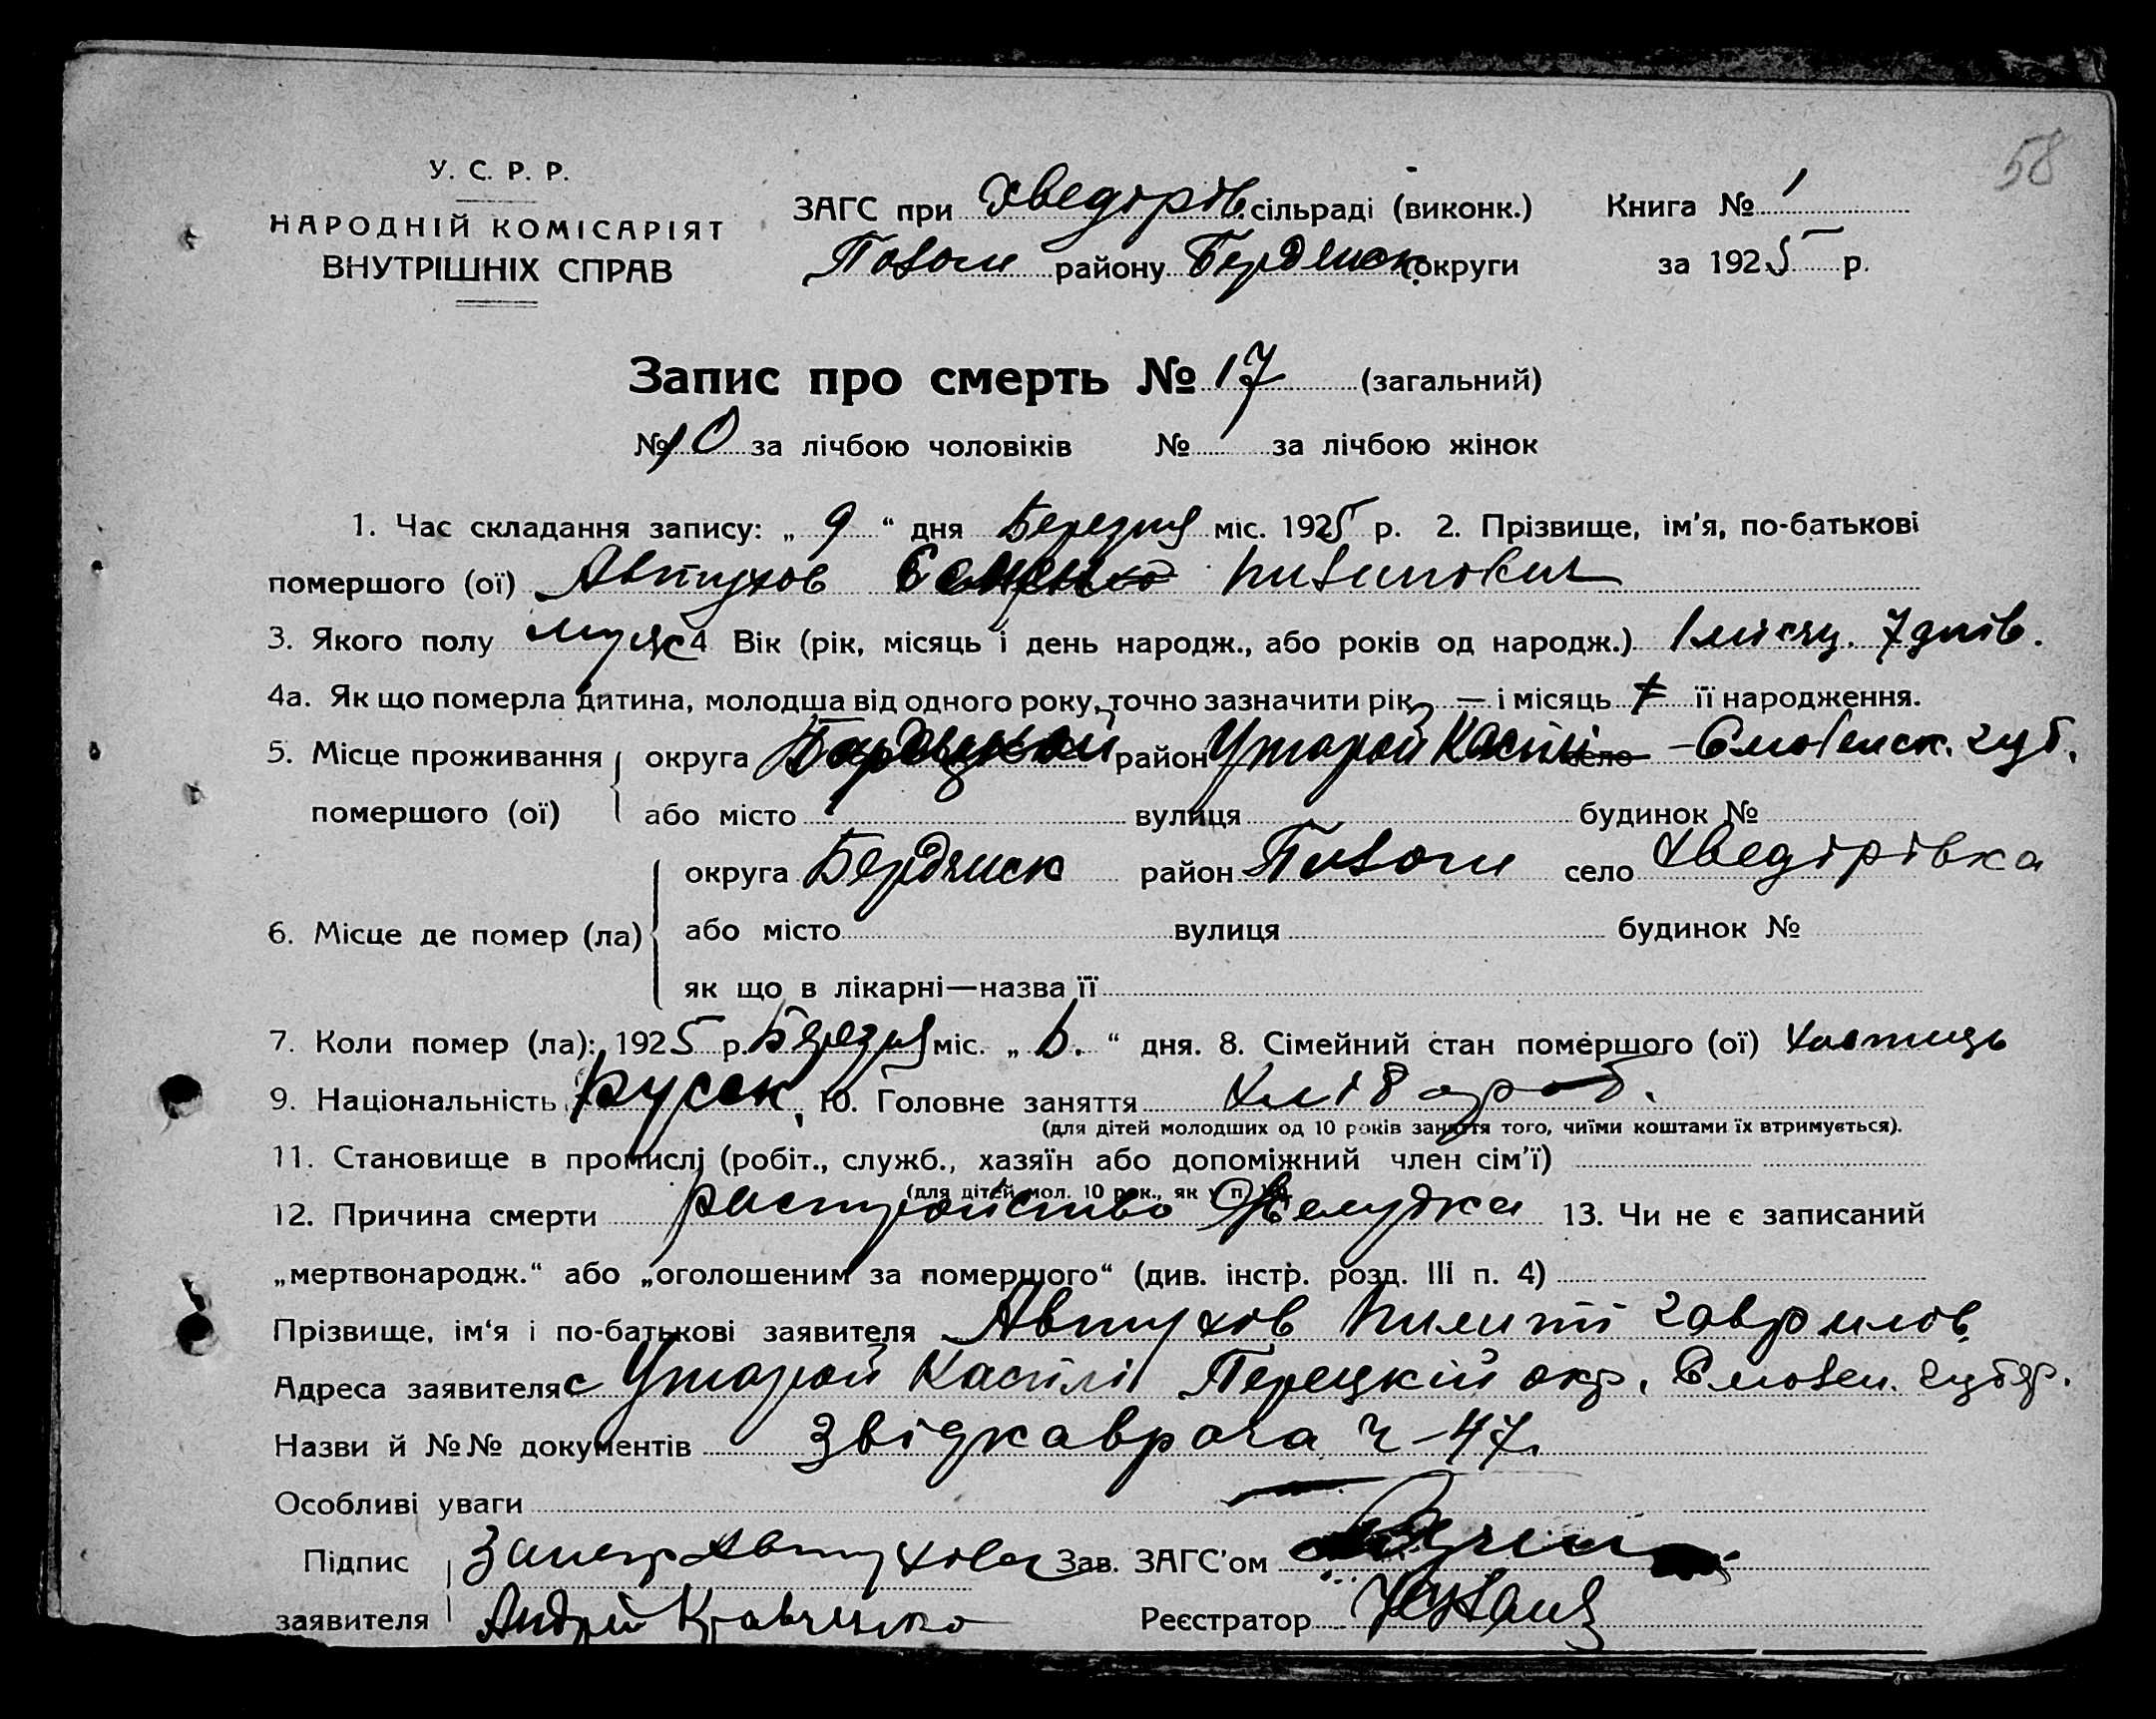 58
У. С. Р. Р.
НАРОДНІЙ КОМІСАРІЯТ
ВНУТРІШНІХ СПРАВ
ЗАГС при Хведорів. сільраді (виконк.)
Пологи району Бердянск. округи
Книга № 1
за 1925 р.
Запис про смерть № 17 (загальний)
№ 10 за лічбою чоловіків № за лічбою жінок
1. Час складання запису: „ 9 “ дня Березня міс. 1925 р. 2. Прізвище, ім’я, по-батькові
помершого (ої) Автухов
3. Якого полу муж 4 Вік (рік, місяць і день народж., або років од народж.) 1 місяц. 7 днів.
4а. Як що померла дитина, молодша від одного року, точно зазначити рік — і місяць її народження.
5. Місце проживання округа район село Смоленск. губ.
помершого (ої) або місто вулиця будинок №
округа Бердянск район Пологи село Хведірівка
6. Місце де помер (ла) або місто вулиця будинок №
як що в лікарні—назва її
7. Коли помер (ла): 1925 р. Березня міс. „ “ дня. 8. Сімейний стан помершого (ої)
9. Національність Руск. 10. Головне заняття хлібороб.
(для дітей молодших од 10 років заняття того, чиїми коштами їх втримується).
11. Становище в промислі (робіт., служб., хазяїн або допоміжний член сім’ї)
(для дітей мол. 10 рок., як у п.
12. Причина смерти растройство Желудка 13. Чи не є записаний
„мертвонародж.“ або „оголошеним за помершого“ (див. інстр. розд. III п. 4)
Прізвище, ім‘я і по-батькові заявителя Автухов гаврилов.
Адреса заявителя с Перецкій окр. Смолен. губер.
Назви й №№ документів 47.
Особливі уваги
Підпис Зав. ЗАГС’ом
заявителя Андрій Кравченко Реєстратор